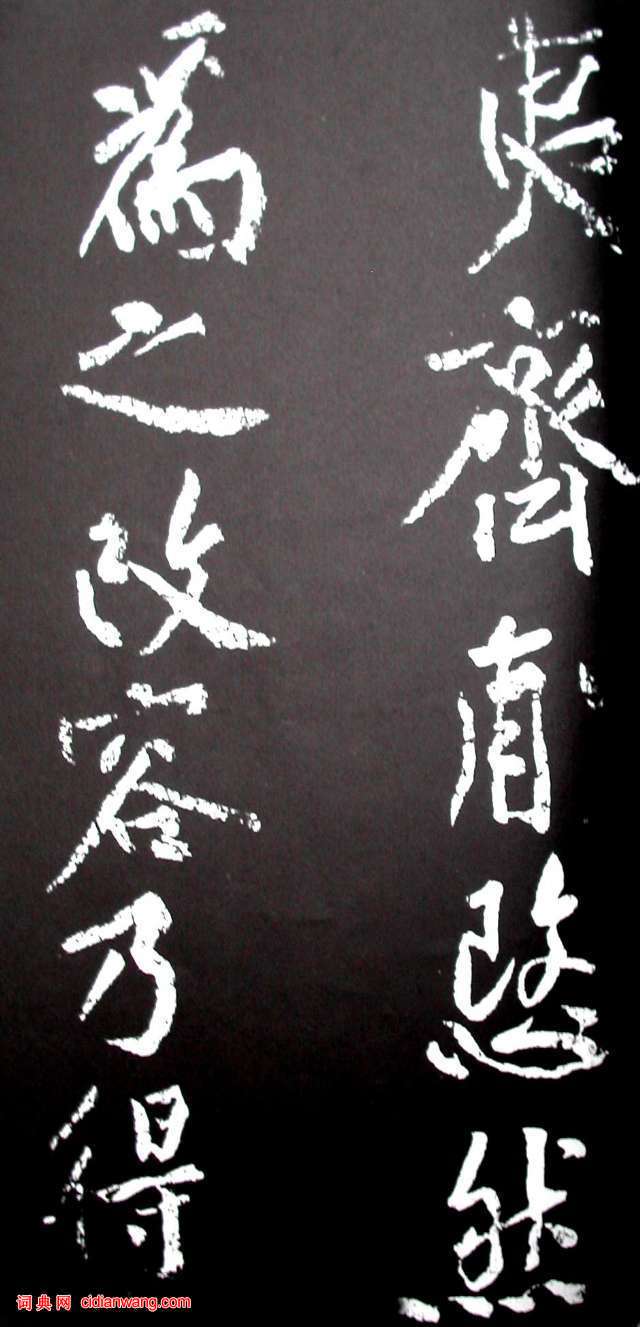 齋愍然
為之改容乃得
词典网 cidianwang.com